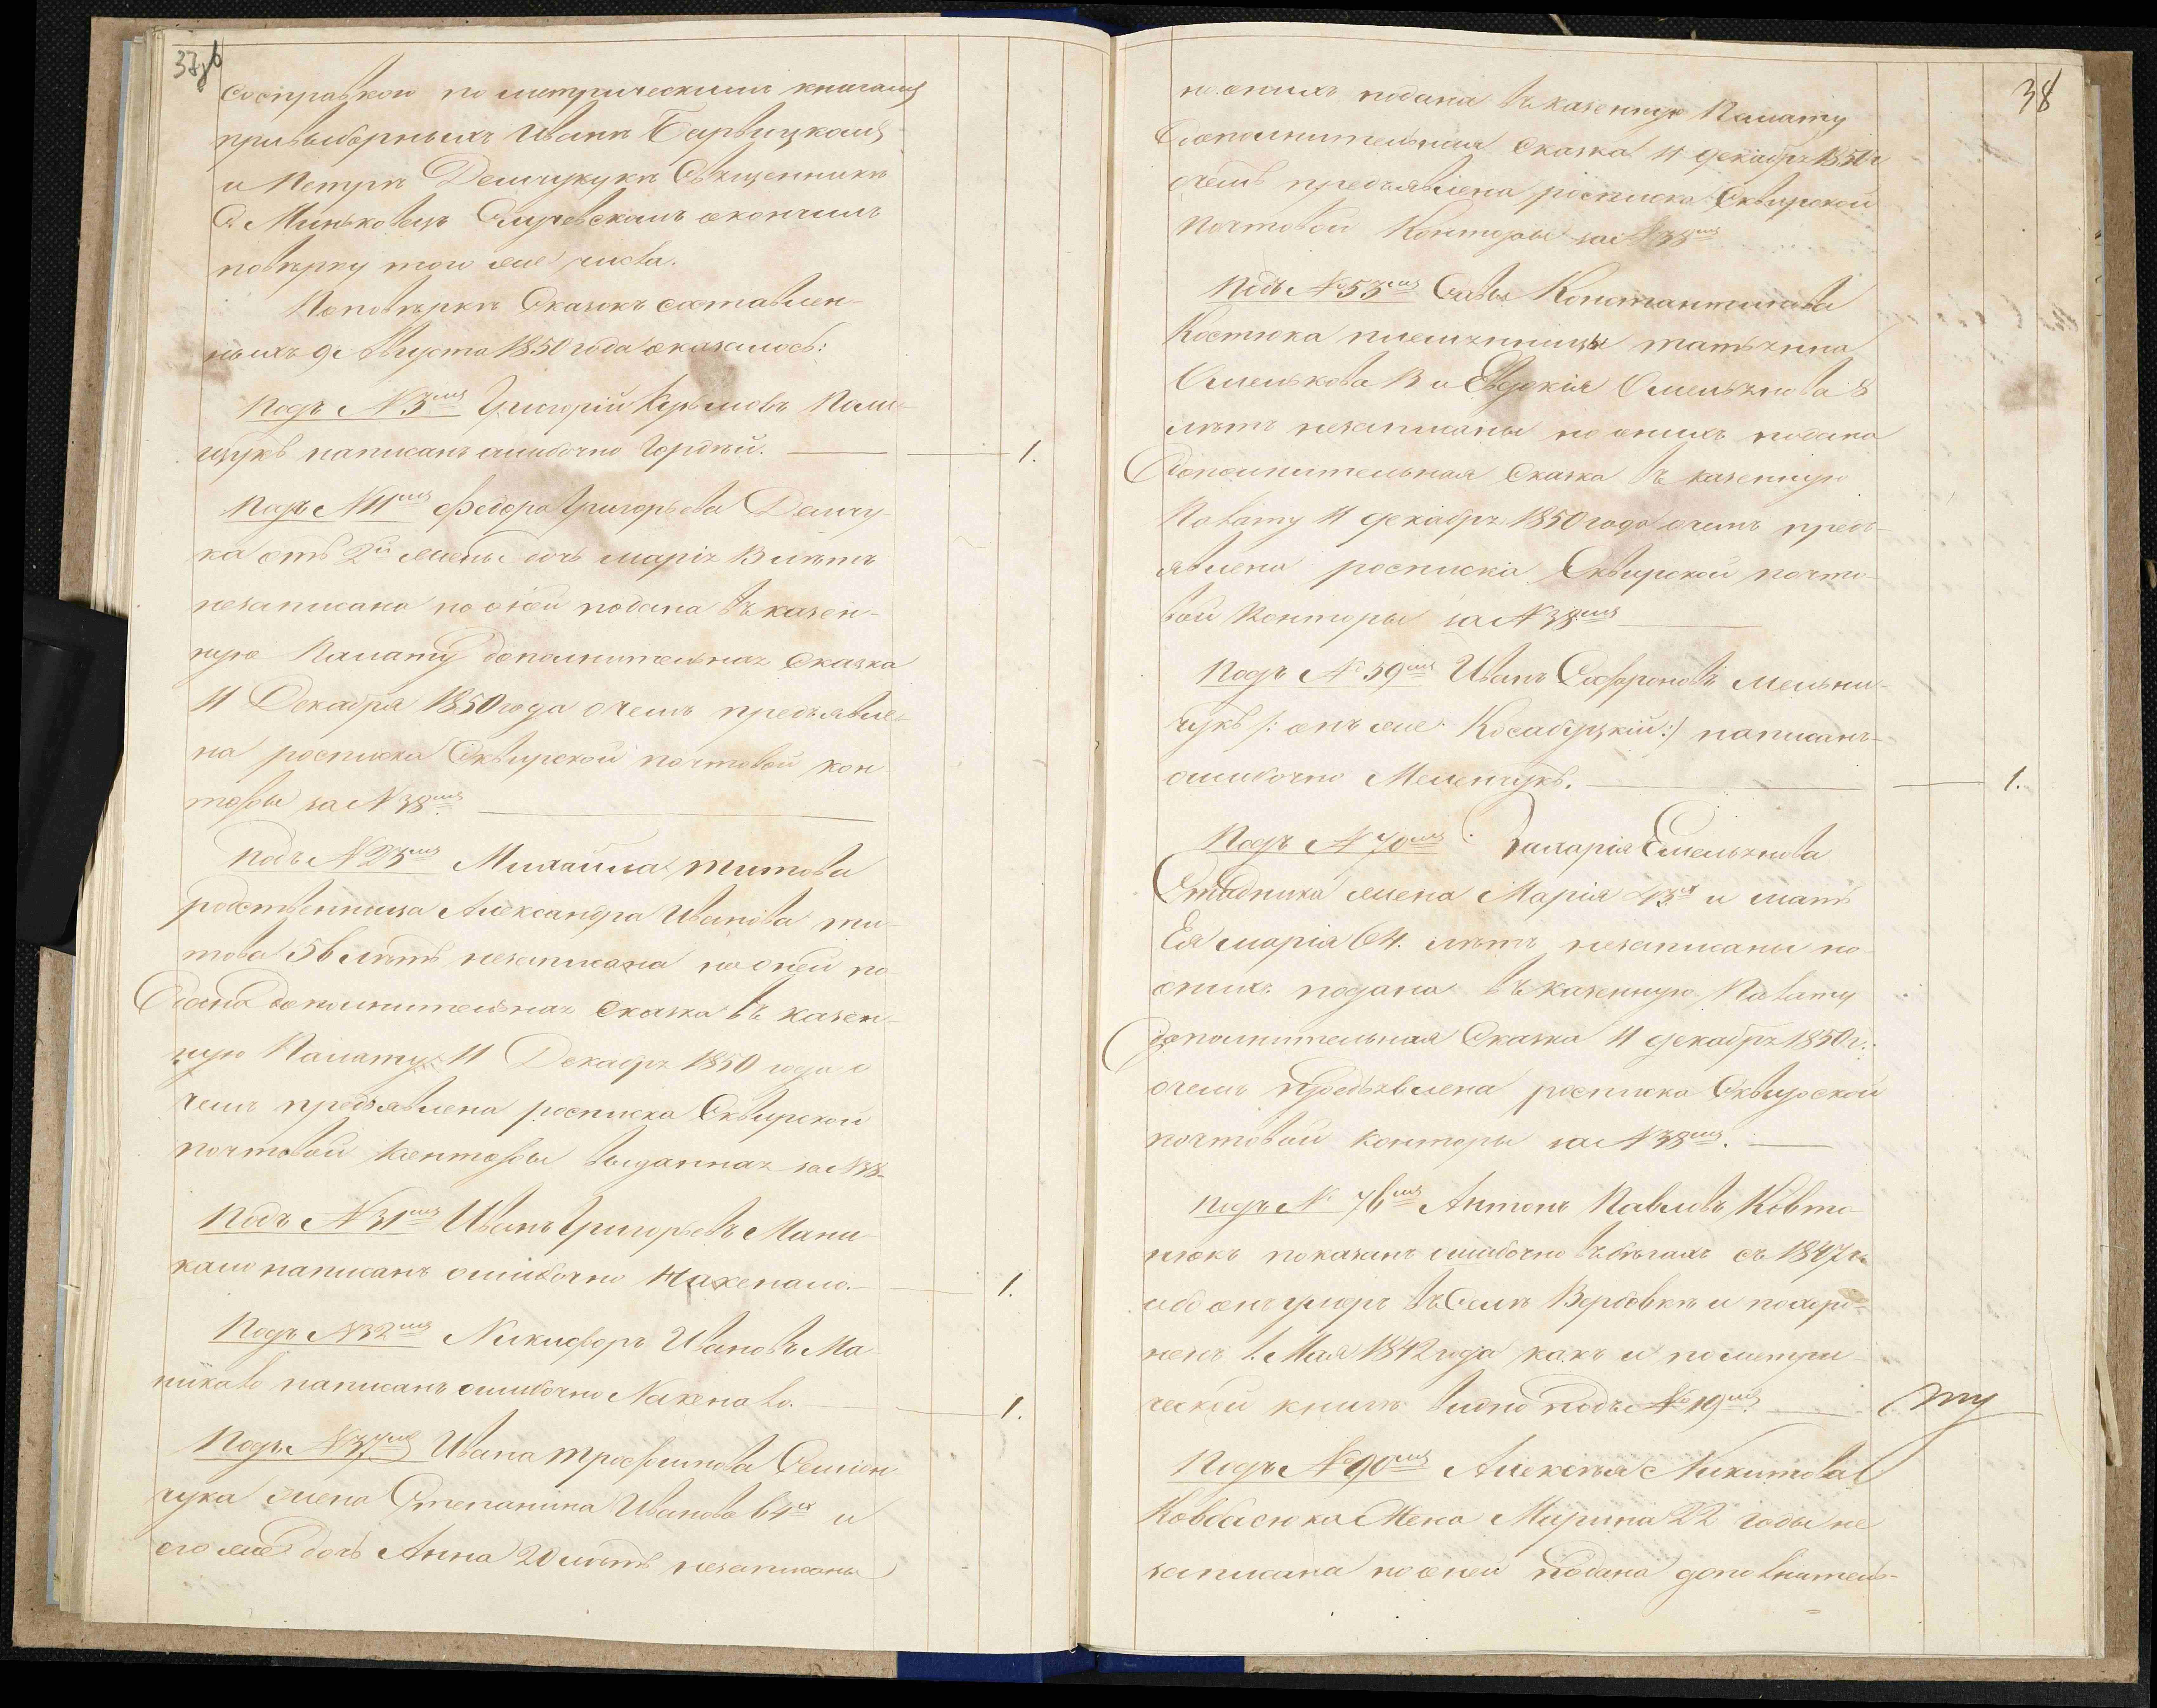 37об
Cосправкою по метрическимъ книгамъ
привыборныхъ Иванѣ Барвицкомъ
и Петрѣ Демчукѣ Священникъ
С. Миньковецъ окончилъ
повѣрку того же числа.
Поповѣркѣ Сказокъ составлен-
ныхъ 9г Августа 1850 года оказалось:
Подъ №3мъ Григорій Поли-
щукъ написанъ ошибочно Гордѣй. 1.
Подъ №11мъ Федора Григорьева Демчу
ка отъ 2й жены дочь Марія 13 лѣтъ
незаписана по оной подана въ казен-
ную Палату дополнительная Сказка
11 Декабря 1850 года очемъ предъявле-
на росписка Сквирской почтовой кон
торы за №38мъ
Подъ №23мъ Михайла Титова
родственница Александра Иванова ти-
това 56 лѣтъ незаписана по оной по
дана дополнительная Сказка въ казен-
ную Палату 11 Декабря 1850 года о
чемъ предъявлена росписка Сквирской
почтовой Конторы выданная за №38
Подъ №31мъ Иванъ Григорьевъ Мани
кало написанъ ошибочно Накепало. 1.
Подъ №32мъ Никифоръ Ивановъ Ма-
никало написанъ ошибочно Накепало. 1.
Подъ №37мъ Ивана Трофимова Семен
чука жена Степанина Иванова 64х и
его же дочь Анна 20 лѣтъ незаписаны
38
по онихъ подана въ казенную Палату
Дополнительная Сказка 11 декабря 1850г
очемъ предъявлена росписка Сквирской
почтовой Конторы за №38мъ
Подъ №53мъ Савы Константинова
Костюка племянницы Татьянна
Омелькова 13 и Евдокія Омельянова 8
лѣтъ незаписаны по онихъ подана
Дополнительная Сказка въ казенную
Палату 11 декабря 1850 года очемъ предъ-
явлена росписка Сквирской почто-
вой Конторы за №38мъ
Подъ №59мъ Иванъ Сафроновъ Мельни-
чукъ /: онъ же Косабуцкій :/ написанъ
ошибочно Меленчукъ. 1.
Подъ №70мъ Иларія Емельянова
Стадника жена Марія 43х и мать
Ея Марія 64. лѣтъ незаписаны по
онихъ подана въ казенную Палату
дополнительная Сказка 11 декабря 1850г.
очемъ предъявлена росписка Сквирской
почтовой конторы за №38мъ.
Подъ № 76мъ Антонъ Павловъ Ковто
нюкъ показанъ ошибочно въ бѣгахъ съ 1847г.
ибо онъ умеръ въ Селѣ Вербовкѣ и похоро-
ненъ 1. Мая 1842 года какъ и по метри
ческой книгѣ видно подъ №19мъ.
Подъ №90мъ Алексѣя Никитова
Ковбасюка Жена Марина 22 годы не
записана по оной подана дополнитель-